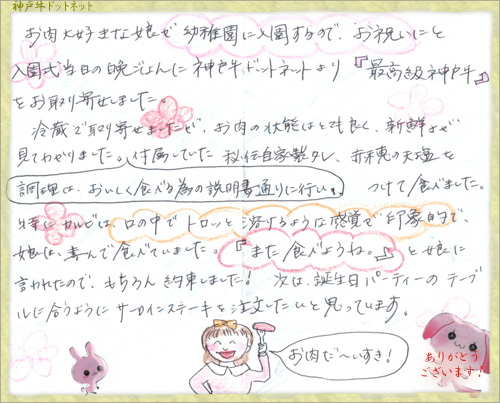 神戸牛ドットネット
お肉大好きな娘が幼稚園に入園するので、お祝いにと
入園式当日の晩ごはんに神戸牛ドットネットより『最高級神戸牛』
をお取り寄せしました。
冷蔵で取り寄せましたが、お肉の状態はとても良く、新鮮さが
見てわかりました。付属していた秘伝自家製タレ、赤穂の天塩を
調理は、おいしく食べる為の説明書通りに行い、つけて食べました。
特にカルビは、口の中でトロッと溶けるような感覚で印象的で、
娘は、喜んで食べていました。『また食べようね。』と娘に
言われたので、もちろん約束しました!次は、誕生日パーティーのテーブ
ルに合うようにサーロインステーキを注文したいと思っています。
お肉だ〜いすき!
ありがとう
ございます!